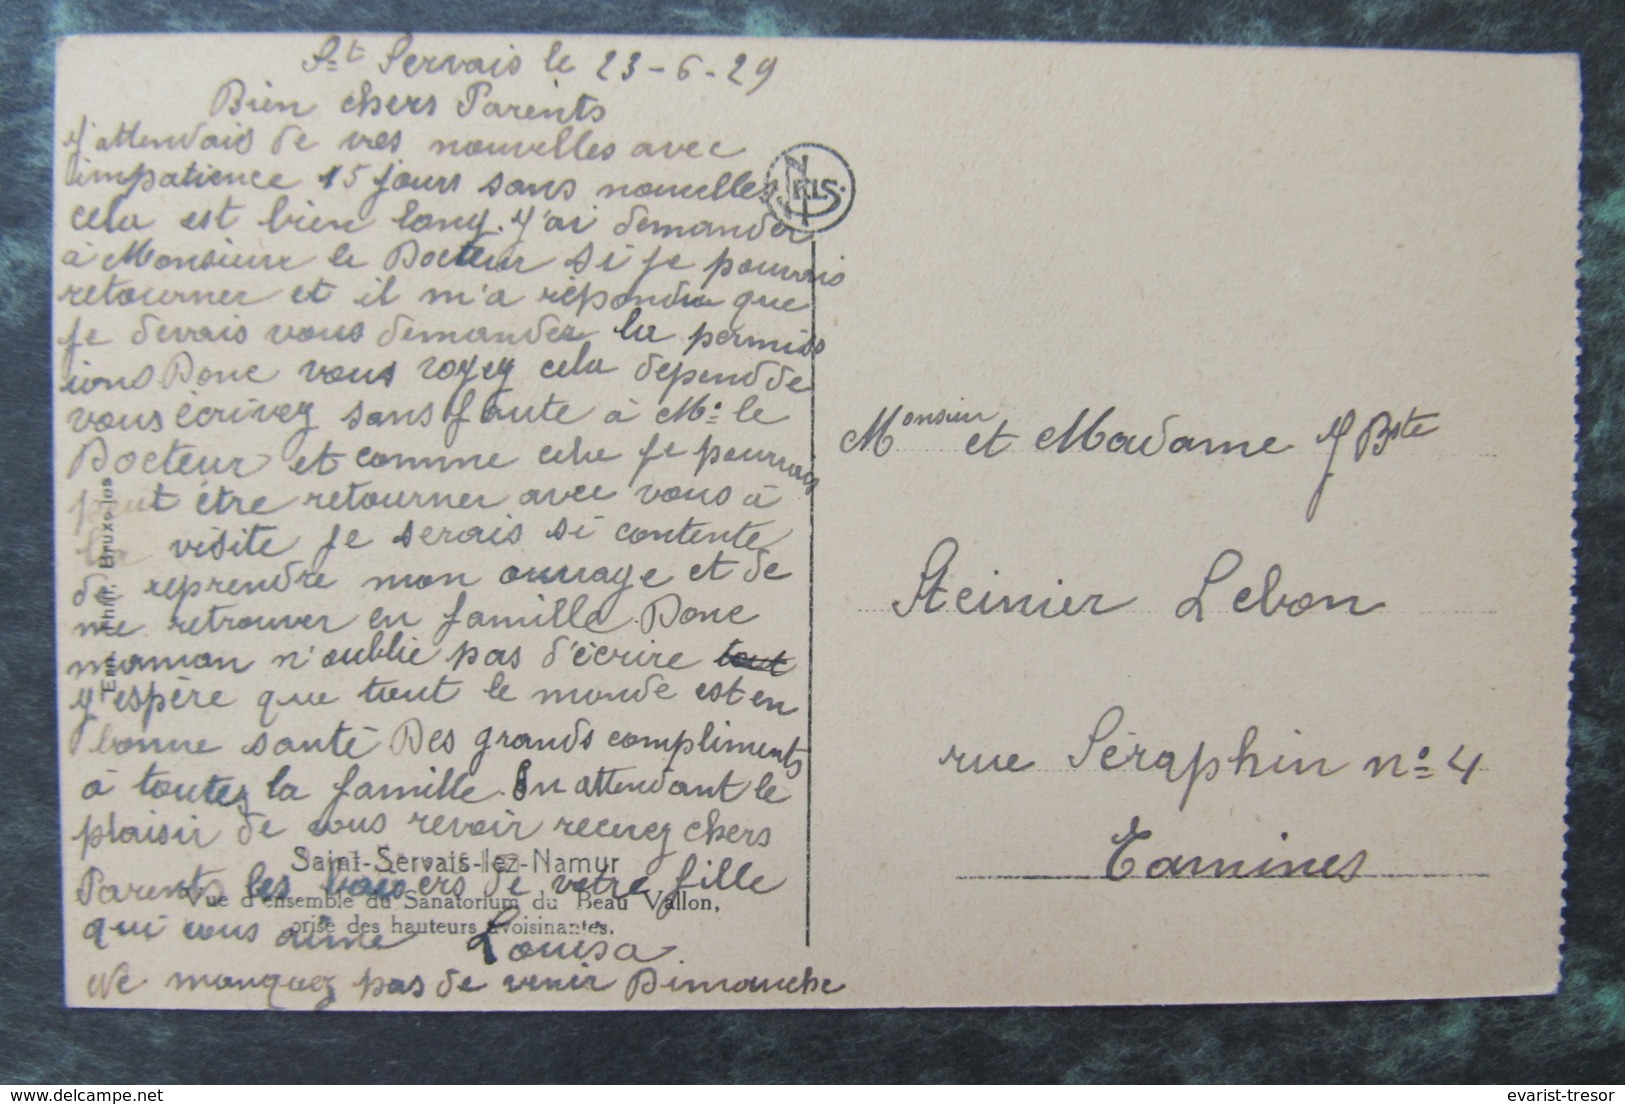 St Servais le 23-6-29
Bien chers Parents
J'attendais de vos nouvelles avec
impatience 15 jours sans nouvelles
cela est bien long. J'ai demander
à Monsieur le Docteur si je pourrais
retourner et il m'a répondu que
je devais vous demander la permiss
ions Donc vous voyez cela dépend de
vous écrivez sans faute à Mr le
Docteur et comme cela je pourrais
peut être retourner avec vous à
la visite je serais si contente
de reprendre mon ouvrage et de
me retrouver en famille. Donc
maman n'oublie pas d'écrire tout
J'espère que tout le monde est en
bonne santé Des grands compliments
à toutes la famille. En attendant le
plaisir de vous revoir recevez chers
Parents les baisers de votre fille
qui vous aime Louisa.
Ne manquez pas de venir Dimanche
Saint-Servais-lez-Namur
Vue d'ensemble du Sanatorium du Beau Vallon,
prise des hauteurs avoisinantes.
Bruxelles
NELS
Monsieur et Madame J Bste
Steinier Lebon
rue Séraphin no 4
Tamines
evarist-tresor
www.delcampe.net